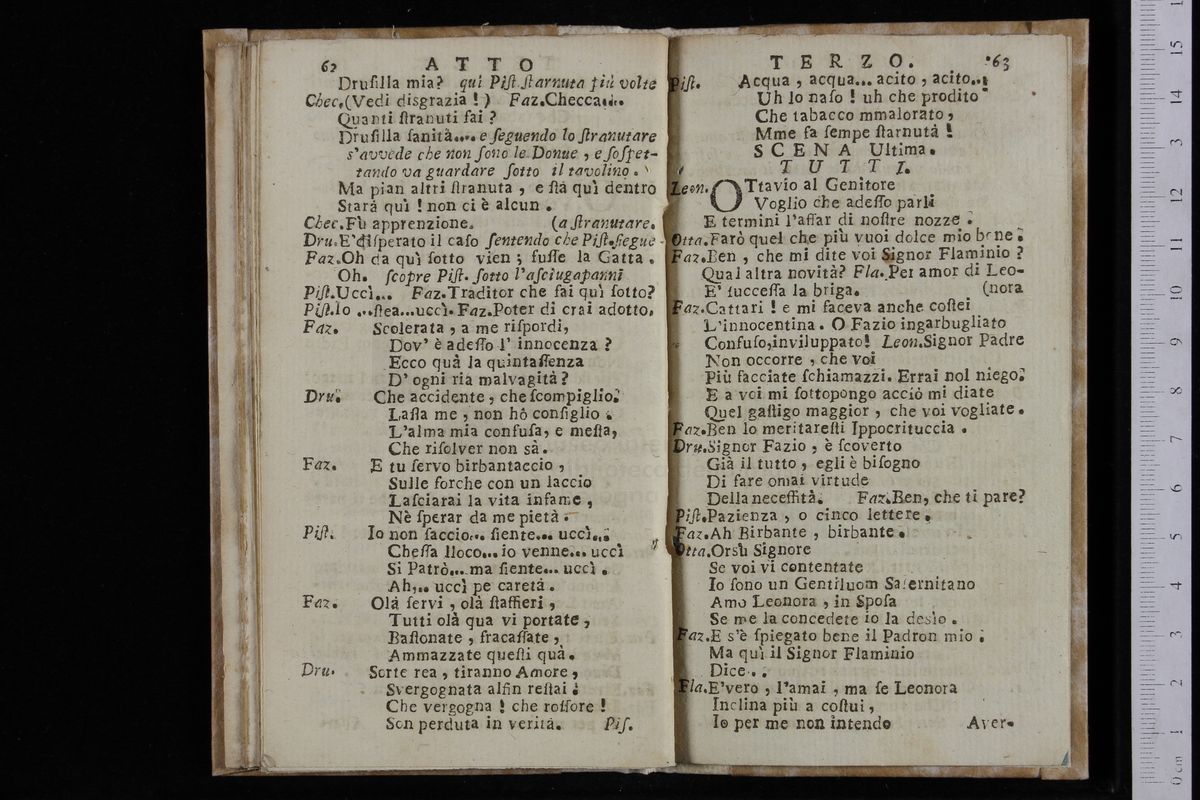 62 ATTO
Druſilla mia? quì Piſt. ſtarnuta più volte
Chec.(Vedi disgrazia!) Faz.Checca....
Quanti ſtranuti fai?
Druſilla ſanità.... e ſeguendo lo ſtranutare
s'avvede che non ſono le Donue, e ſoſpet-
tando va guardare ſotto il tavolino.
Ma pian altri ſtranuta, e ſtà quì dentro
Starà quì! non ci è alcun.
Chec.Fù apprenzione. (a ſtranutare.
Dru.E'diſperato il caſo ſentendo che Piſt.ſiegue
Faz.Oh da quì ſotto vien; fuſſe la Gatta.
Oh. ſcopre Piſt. ſotto l'aſciugapanni
Piſt.Uccì... Faz.Traditor che fai quì ſotto?
Piſt.Io ...ſtea...uccì. Faz.Poter di crai adotto.
Faz. Scolerata, a me riſpordi,
Dov' è adeſſo l' innocenza?
Ecco quà la quintaſſenza
D' ogni ria malvagità?
Dru. Che accidente, che ſcompiglio.
Laſſa me, non hò conſiglio.
L'alma mia confuſa, e meſta,
Che riſolver non sà.
Faz. E tu ſervo birbantaccio,
Sulle forche con un laccio
Laſciarai la vita infame,
Nè ſperar da me pietà.
Piſt. Io non faccio... ſiente... uccì...
Cheſſa lloco... io venne... uccì
Si Patrò... ma ſiente... uccì.
Ah,.. uccì pe caretà.
Faz. Olà ſervi, olà ſtaffieri,
Tutti olà qua vi portate,
Baſtonate, fracaſſate,
Ammazzate queſti quà.
Dru. Sorte rea, tiranno Amore,
Svergognata alfin reſtai.
Che vergogna! che roſſore!
Son perduta in verità. Piſ.
TERZO. 63
Piſt. Acqua, acqua... acito, acito...
Uh lo naſo! uh che prodito
Che tabacco mmalorato,
Mme fa ſempe ſtarnutà!
SCENA Ultima.
TUTTI.
Leon. OTtavio al Genitore
Voglio che adeſſo parli
E termini l'affar di noſtre nozze.
Otta.Farò quel che più vuoi dolce mio bene.
Faz.Ben, che mi dite voi Signor Flaminio?
Qual altra novità? Fla.Per amor di Leo-
E' ſucceſſa la briga. (nora
Faz.Cattari! e mi faceva anche coſtei
L'innocentina. O Fazio ingarbugliato
Confuſo,inviluppato! Leon.Signor Padre
Non occorre, che voi
Più facciate ſchiamazzi. Errai nol niego.
E a voi mi ſottopongo acciò mi diate
Quel gaſtigo maggior, che voi vogliate.
Faz.Ben lo meritareſti Ippocrituccia.
Dru.Signor Fazio, è ſcoverto
Già il tutto, egli è biſogno
Di fare omai virtude
Della neceſſità. Faz.Ben, che ti pare?
Piſt.Pazienza, o cinco lettere.
Faz.Ah Birbante, birbante.
Otta.Orsù Signore
Se voi vi contentate
Io ſono un Gentiluom Salernitano
Amo Leonora, in Spoſa
Se me la concedete io la desìo.
Faz.E s'è ſpiegato bene il Padron mio.
Ma quì il Signor Flaminio
Dice..
Fla.E'vero, l'amai, ma ſe Leonora
Inclina più a coſtui,
Io per me non intendo Aver-
0 cm 1 2 3 4 5 6 7 8 9 10 11 12 13 14 15